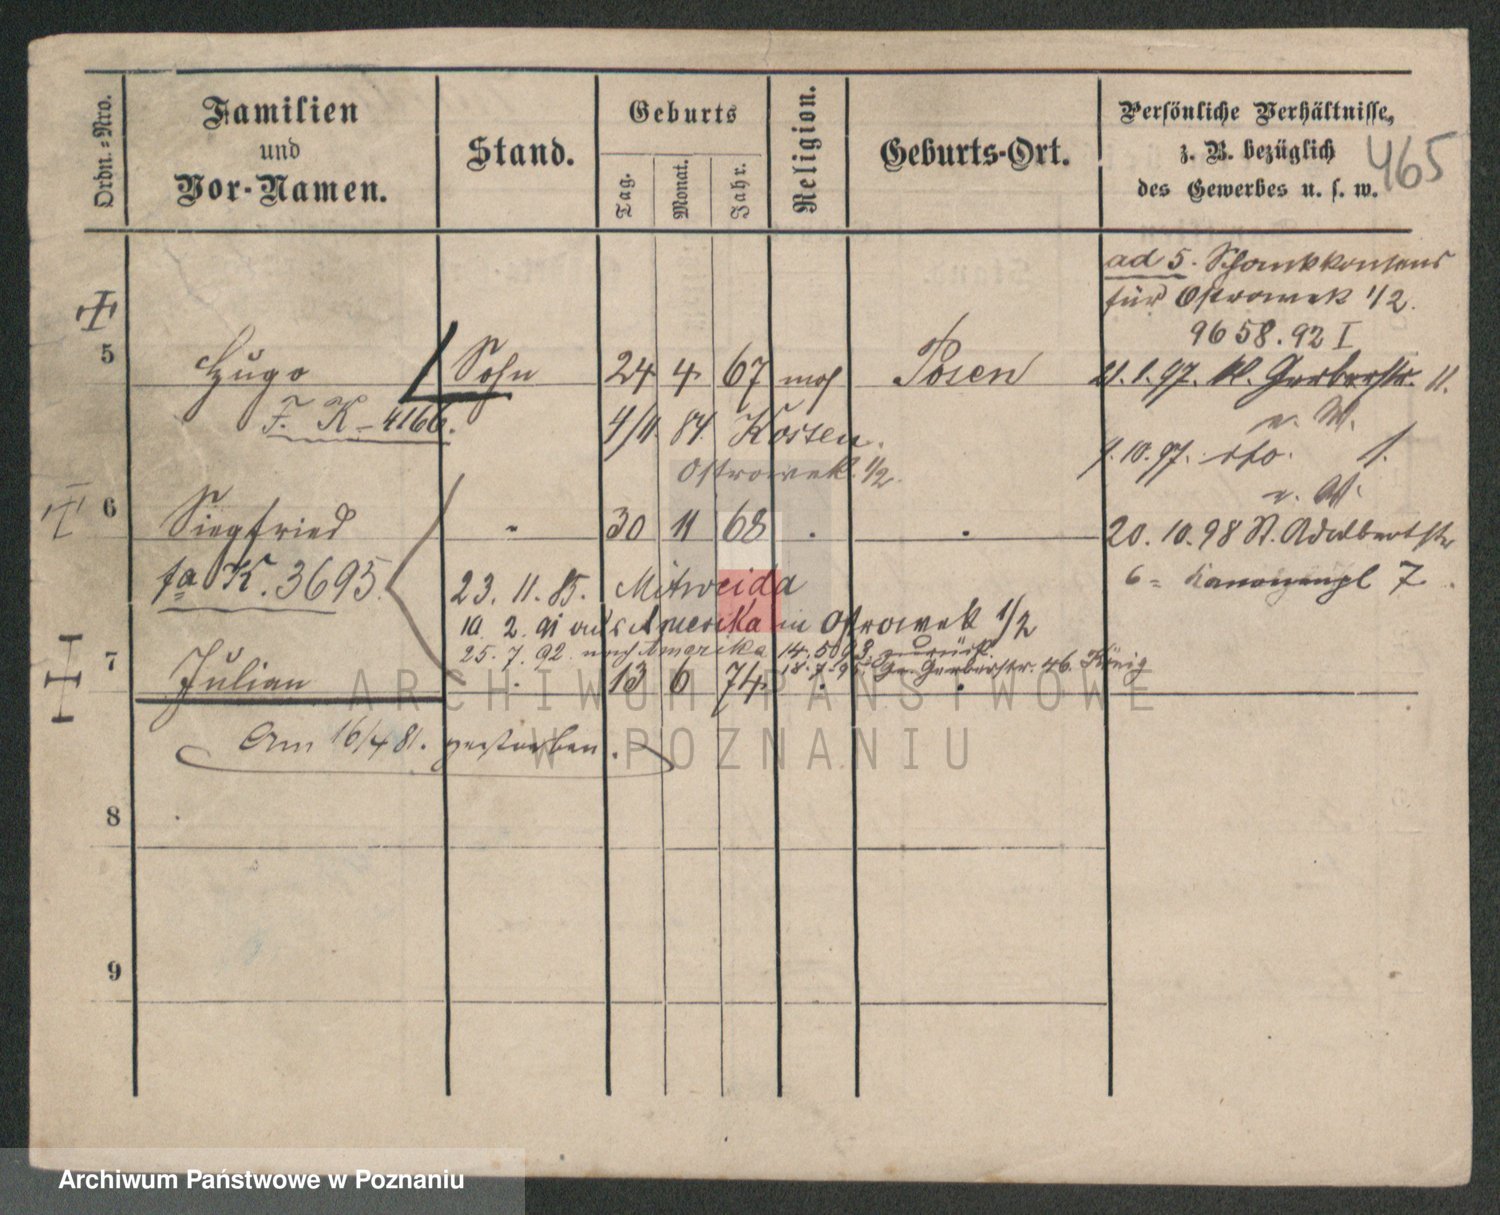 Ordn.=Nro.
Familien
und
Vor-Namen.
Stand.
Geburts
Tag.
Monat.
Jahr.
Religion.
Geburts-Ort.
Persönliche Verhältnisse,
z. B. bezüglich
des Gewerbes u. s. w.
465
ad 5. Schankkonsens
für Ostrowek 1/2.
9658.92 I
5 Hugo Sohn 24 4 67 mos Posen
21.1.97. Kl. Gerberstr. 11.
v. W.
F. K - 4166.
4/11. 84. Kosten.
Ostrowek 1/2.
1.10.97. 1.
v. W.
6 Siegfried " 30 11 68 . .
20.10.98 St. Adalbertstr
6 = Kanonenpl 7.
fa K. 3695.
23. 11. 85. Mitweida
10. 2. 91 aus Amerika in Ostrowek 1/2
25. 7. 92. nach Amerika 14. 5. 93. zurück.
18. 7. 95. Gr. Gerberstr. 46. König
7 Julian . 13 6 74 . .
Am 16/4 81. verstorben.
8
9
ARCHIWUM PAŃSTWOWE
W POZNANIU
Archiwum Państwowe w Poznaniu